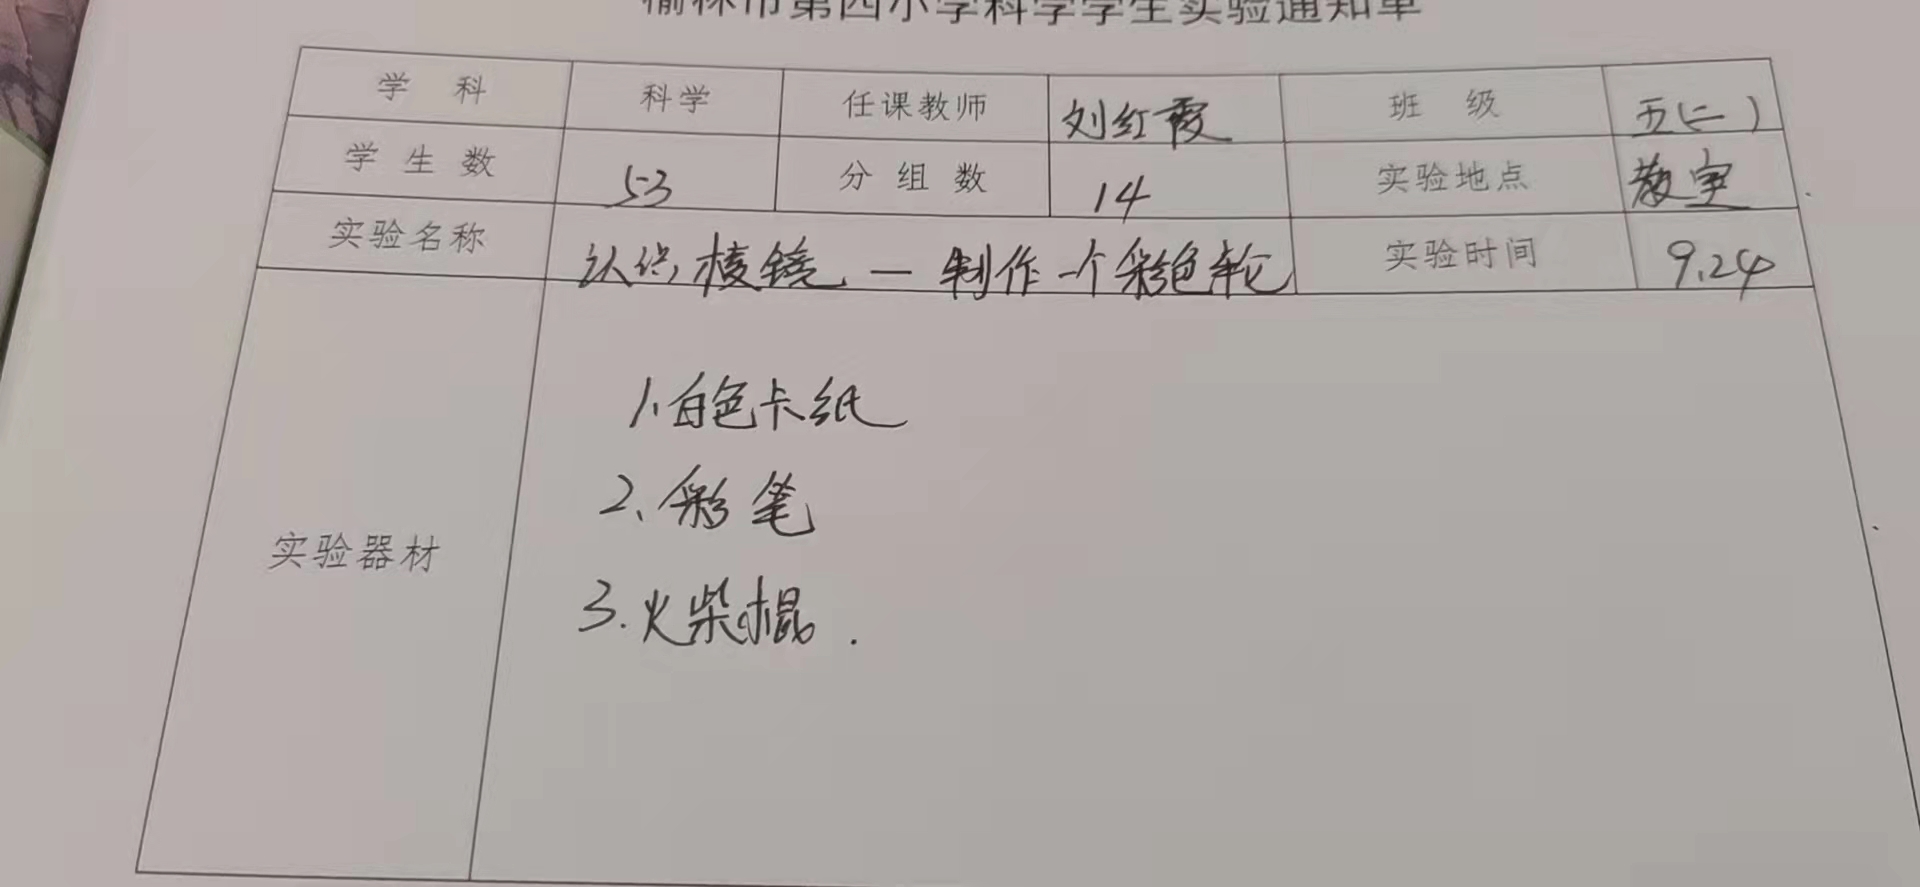 榆林市第四小学科学学生实验通知单
学 科 科学 任课教师 刘红霞 班 级 五(二)
学 生 数 53 分 组 数 14 实验地点 教室
实验名称 认识棱镜 — 制作一个彩色轮 实验时间 9.24
实验器材
1、白色卡纸
2、彩笔
3.火柴棍.